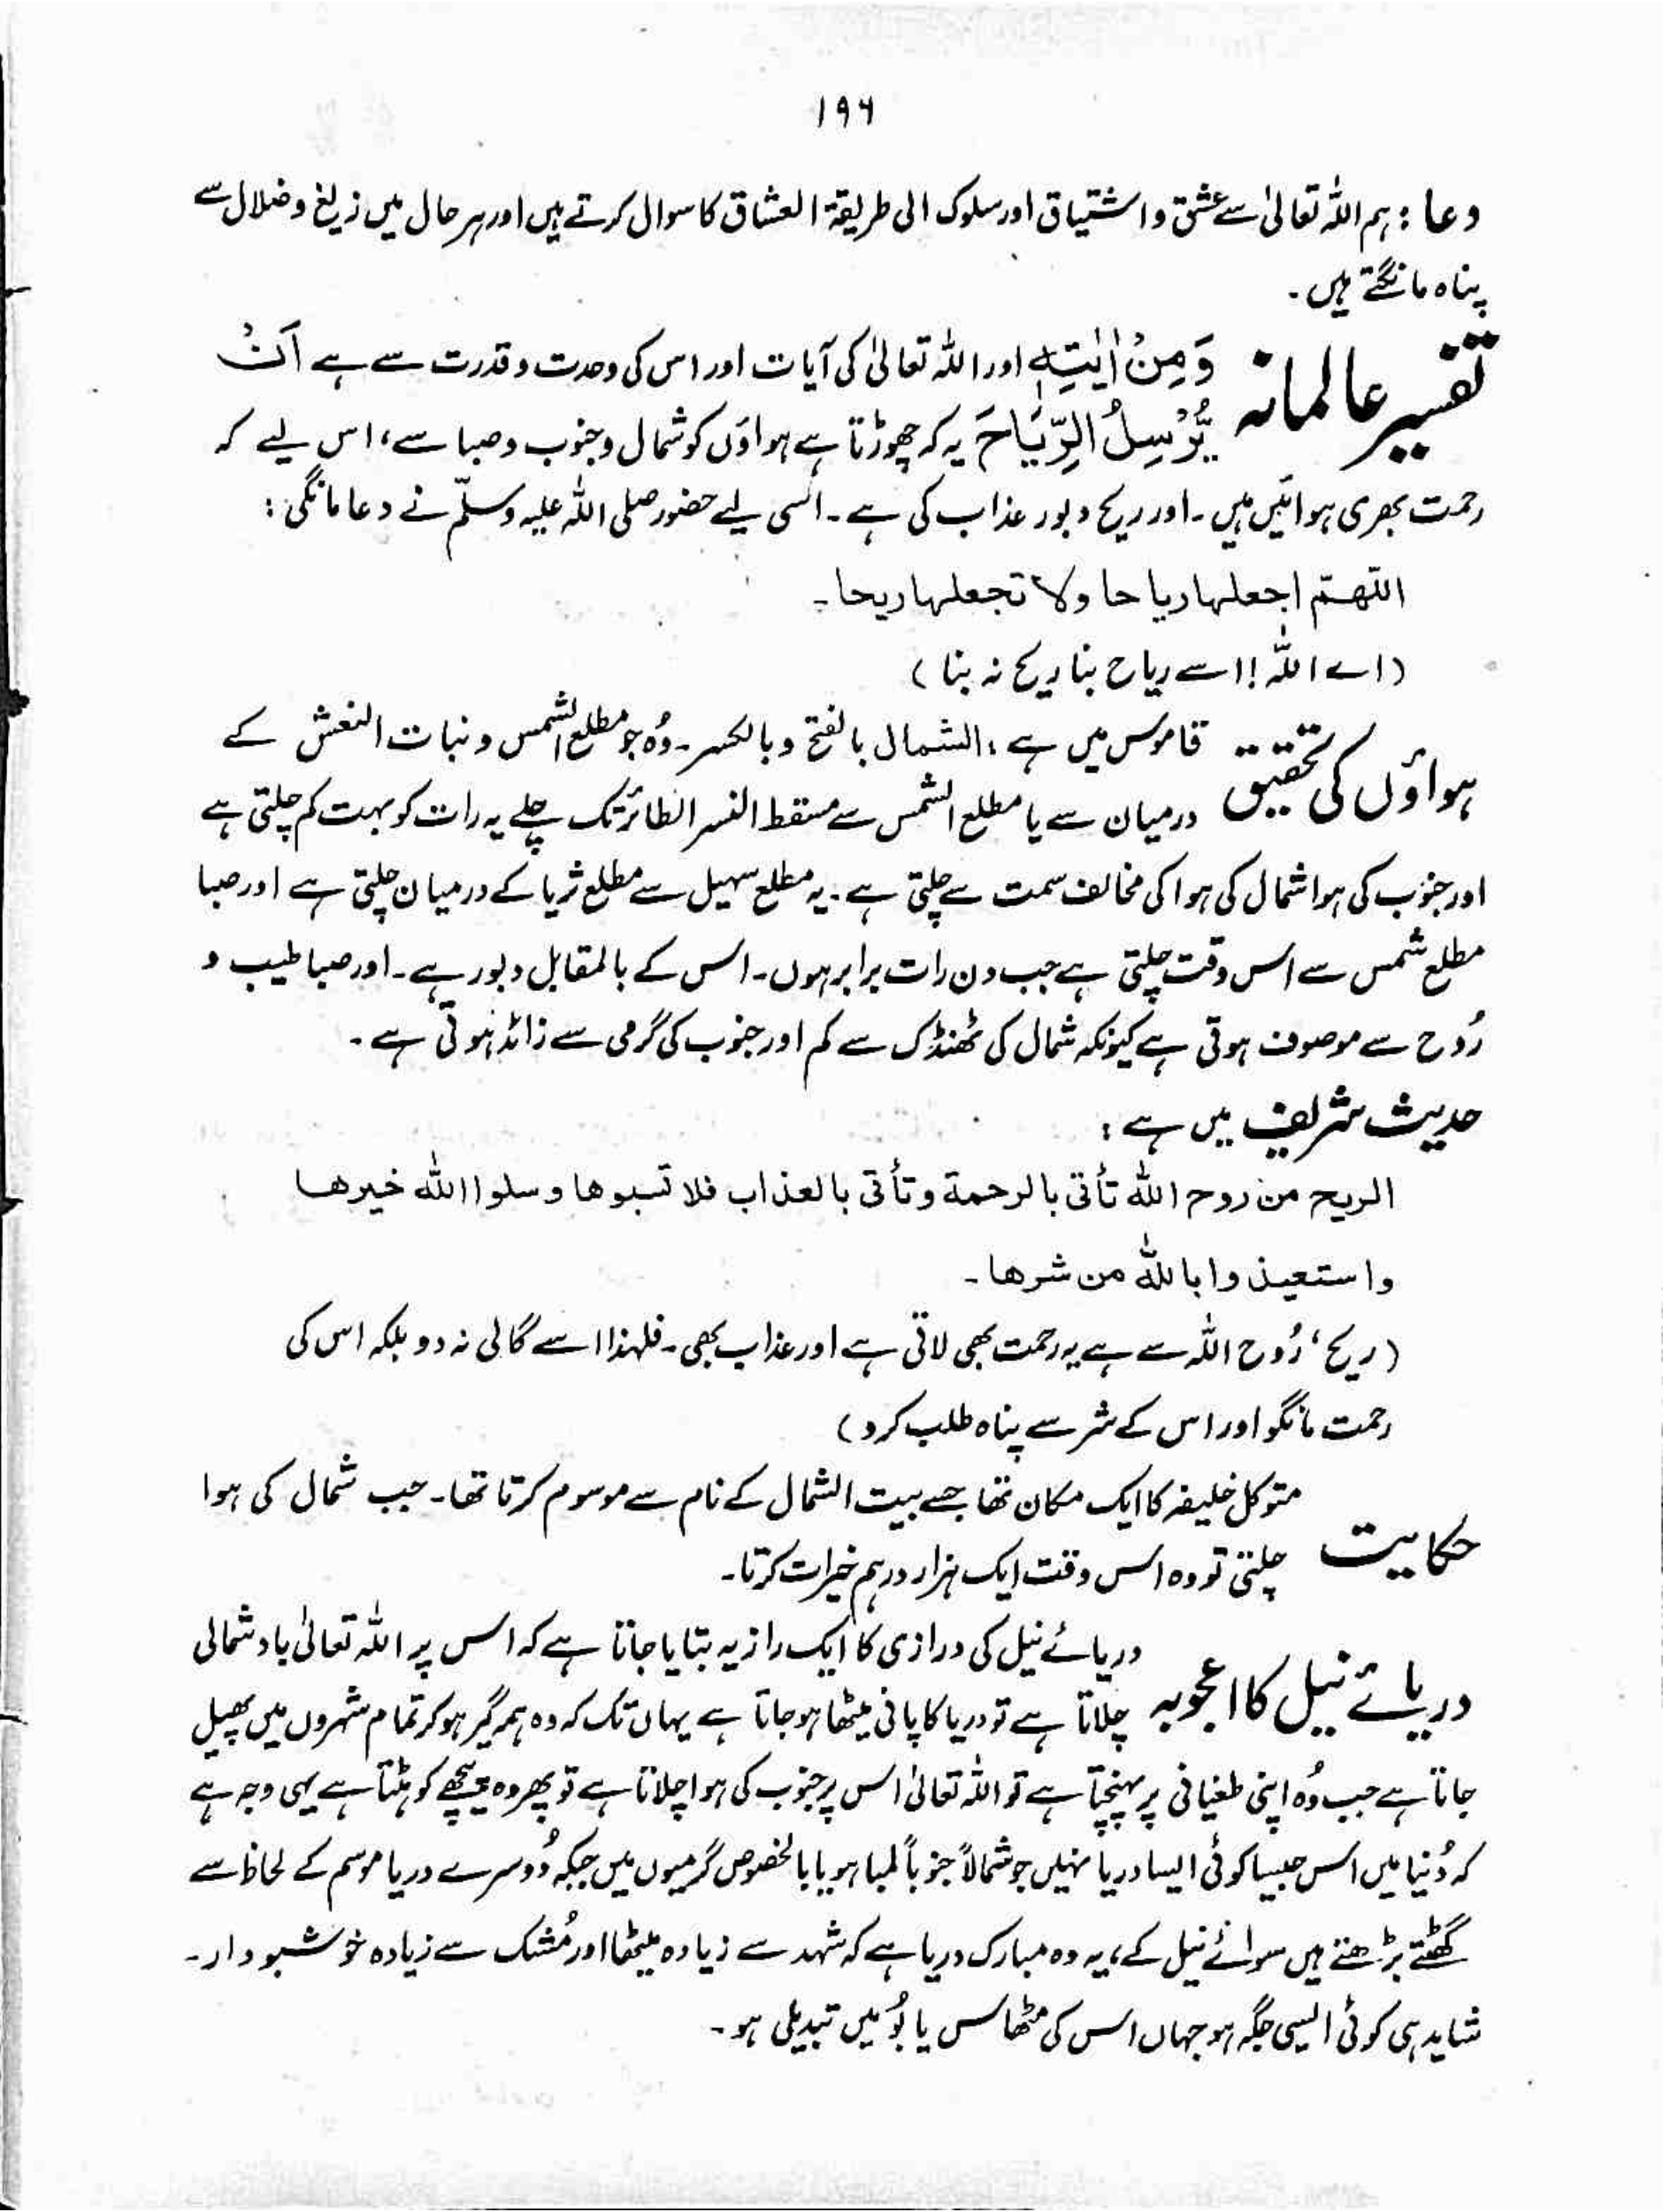 ۱۹۶
دعا : ہم اللہ تعالیٰ سے عشق و اشتیاق اور سلوک الی طریقۃ العشاق کا سوال کرتے ہیں اور ہر حال میں زیغ و ضلال سے
پناہ مانگتے ہیں۔
تفسیر عالمانہ وَمِنْ اٰیٰتِہٖ اور اللہ تعالیٰ کی آیات اور اس کی وحدت و قدرت سے ہے اَنْ
یُّرْسِلُ الرِّیَاحَ یہ کہ چھوڑتا ہے ہواؤں کو شمال و جنوب و صبا سے، اس لیے کہ
رحمت بھری ہوائیں ہیں۔ اور ریح دبور عذاب کی ہے۔ اسی لیے حضور صلی اللہ علیہ وسلّم نے دعا مانگی :
اللّٰھمّ اجعلہا ریاحا ولا تجعلہا ریحا۔
(اے اللہ! اسے ریاح بنا ریح نہ بنا)
ہواؤں کی تحقیق قاموس میں ہے، الشمال بالفتح و بالکسر۔ وُہ جو مطلع الشمس و نبات النعش کے
درمیان سے یا مطلع الشمس سے مسقط النسر الطائر تک چلے یہ رات کو بہت کم چلتی ہے
اور جنوب کی ہوا شمال کی ہوا کی مخالف سمت سے چلتی ہے۔ یہ مطلع سہیل سے مطلع ثریا کے درمیان چلتی ہے اور صبا
مطلع شمس سے اس وقت چلتی ہے جب دن رات برابر ہوں۔ اس کے بالمقابل دبور ہے۔ اور صبا طیب و
رُوح سے موصوف ہوتی ہے کیونکہ شمال کی ٹھنڈک سے کم اور جنوب کی گرمی سے زائد ہوتی ہے۔
حدیث شریف میں ہے :
الریح من روح اللہ تأتی بالرحمۃ وتأتی بالعذاب فلا تسبوھا وسلوا اللہ خیرھا
واستعیذوا باللہ من شرھا۔
(ریح، رُوح اللہ سے ہے یہ رحمت بھی لاتی ہے اور عذاب بھی۔ فلہٰذا اسے گالی نہ دو بلکہ اس کی
رحمت مانگو اور اس کے شر سے پناہ طلب کرو)
حکایت متوکل خلیفہ کا ایک مکان تھا جسے بیت الشمال کے نام سے موسوم کرتا تھا۔ جب شمال کی ہوا
چلتی تو وہ اس وقت ایک ہزار درہم خیرات کرتا۔
دریائے نیل کا اعجوبہ دریائے نیل کی درازی کا ایک راز یہ بتایا جاتا ہے کہ اس پر اللہ تعالیٰ باد شمالی
چلاتا ہے تو دریا کا پانی میٹھا ہو جاتا ہے یہاں تک کہ وہ ہمہ گیر ہو کر تمام شہروں میں پھیل
جاتا ہے جب وُہ اپنی طغیانی پر پہنچتا ہے تو اللہ تعالیٰ اس پر جنوب کی ہوا چلاتا ہے تو پھر وہ پیچھے کو ہٹتا ہے یہی وجہ ہے
کہ دُنیا میں اس جیسا کوئی ایسا دریا نہیں جو شمالاً جنوباً لمبا ہو یا بالخصوص گرمیوں میں جبکہ دُوسرے دریا موسم کے لحاظ سے
گھٹتے بڑھتے ہیں سوائے نیل کے، یہ وہ مبارک دریا ہے کہ شہد سے زیادہ میٹھا اور مُشک سے زیادہ خوشبودار۔
شاید ہی کوئی ایسی جگہ ہو جہاں اس کی مٹھاس یا بُو میں تبدیلی ہو۔